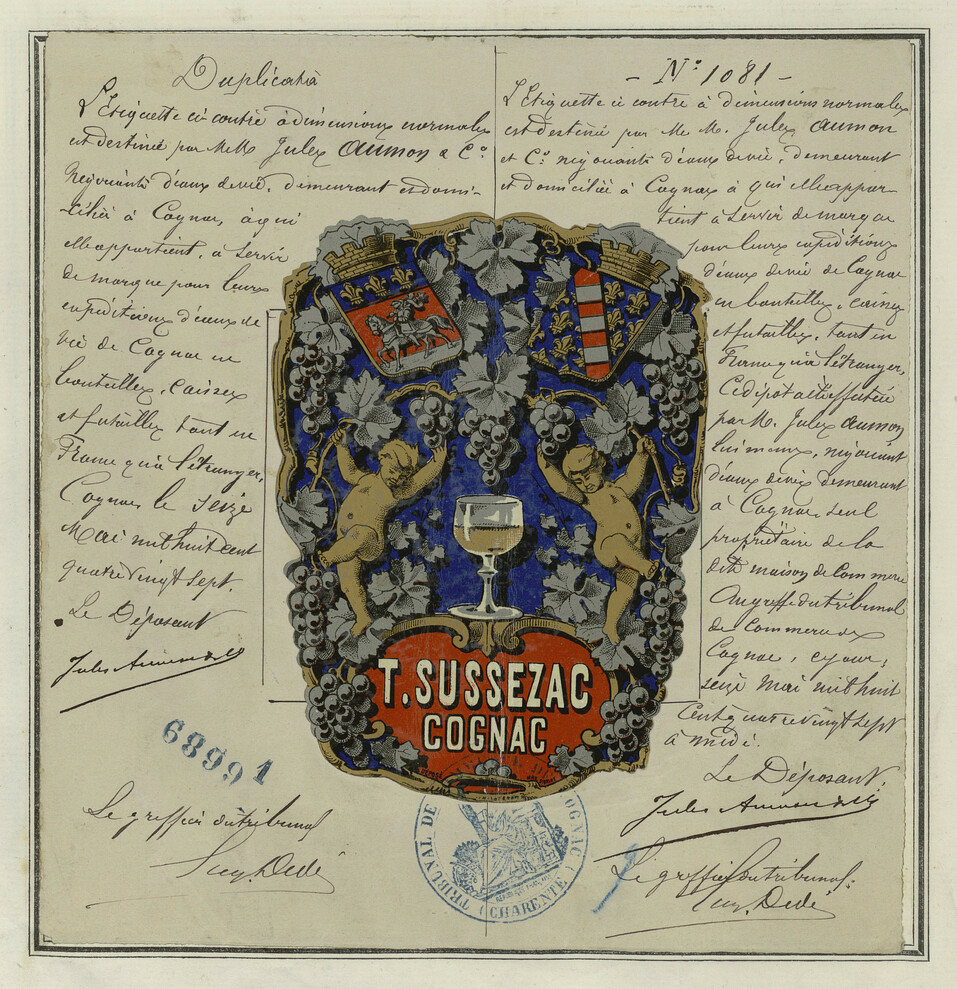 Duplicata
L'Etiquette ci contre à dimensions normales
est destinée par MM. Jules Aumon & Cº
Négociants d'eaux de vie, demeurant et domi-
ciliés à Cognac, à qui
elle appartient, à servir
de marque pour leurs
expéditions d'eaux de
vie de Cognac en
bouteilles, caisses
et futailles tant en
France qu'à l'étranger,
Cognac le seize
Mai mil huit cent
quatre vingt sept.
Le Déposant
Jules Aumon & Cº
68991
Le greffier du tribunal
Dedé
- Nº 1081 -
L'Etiquette ci contre à dimensions normales
est destinée par MM. Jules Aumon
et Cº négociants d'eaux de vie, demeurant
et domiciliés à Cognac à qui elle appar-
tient à servir de marque
pour leurs expéditions
d'eaux de vie de Cognac
en bouteilles, caisses
et futailles, tant en
France qu'à l'étranger,
Ce dépôt a été effectué
par M. Jules Aumon
lui même, négociant
d'eaux de vie demeurant
à Cognac, seul
propriétaire de la
dite maison de Commerce
Au greffe du tribunal
de Commerce de
Cognac, ce jour,
seize Mai mil huit
Cent quatre vingt sept
à midi.
Le Déposant,
Jules Aumon & Cº
Le greffier du tribunal.
Dedé
T. SUSSEZAC
COGNAC
TRIBUNAL DE COGNAC
(CHARENTE)